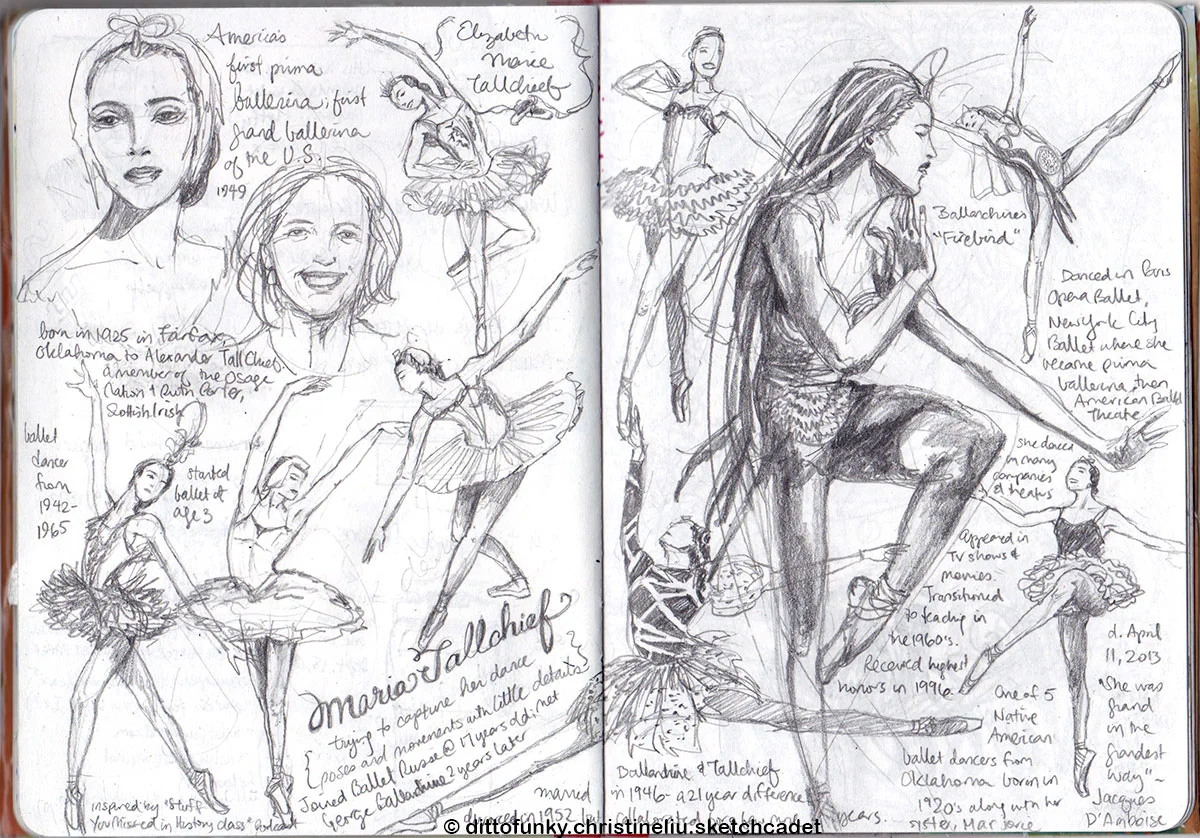 America's
first prima
ballerina; first
grand ballerina
of the U.S.
1949
Elizabeth
Marie
Tallchief
born in 1925 in Fairfax,
Oklahoma to Alexander Tall Chief.
a member of the Osage
Nation & Ruth Porter,
Scottish Irish
ballet
dancer
from
1942-
1965
started
ballet at
age 3
Maria Tallchief
{ trying to capture her dance }
poses and movements with little details
Joined Ballet Russe @ 17 years old; met
George Ballanchine 2 years later
inspired by "Stuff
You Missed in History class" Podcast
Ballanchines
"Firebird"
Danced in Paris
Opera Ballet,
New York City
Ballet where she
became prima
ballerina, then
American Ballet
Theatre
she danced
in many
companies
& theatres
Appeared in
TV shows &
movies.
Transitioned
to teaching in
the 1960's.
Received highest
honors in 1996
One of 5
Native
American
ballet dancers from
Oklahoma born in
1920's along with her
sister, Marjorie
d. April
11, 2013
"She was
grand
in the
grandest
way" ~
Jacques
D'Amboise
Ballanchine & Tallchief
married in 1946 - a 21 year difference
divorced in 1952 but collaborated for many more years.
© dittofunky.christineliu.sketchcadet